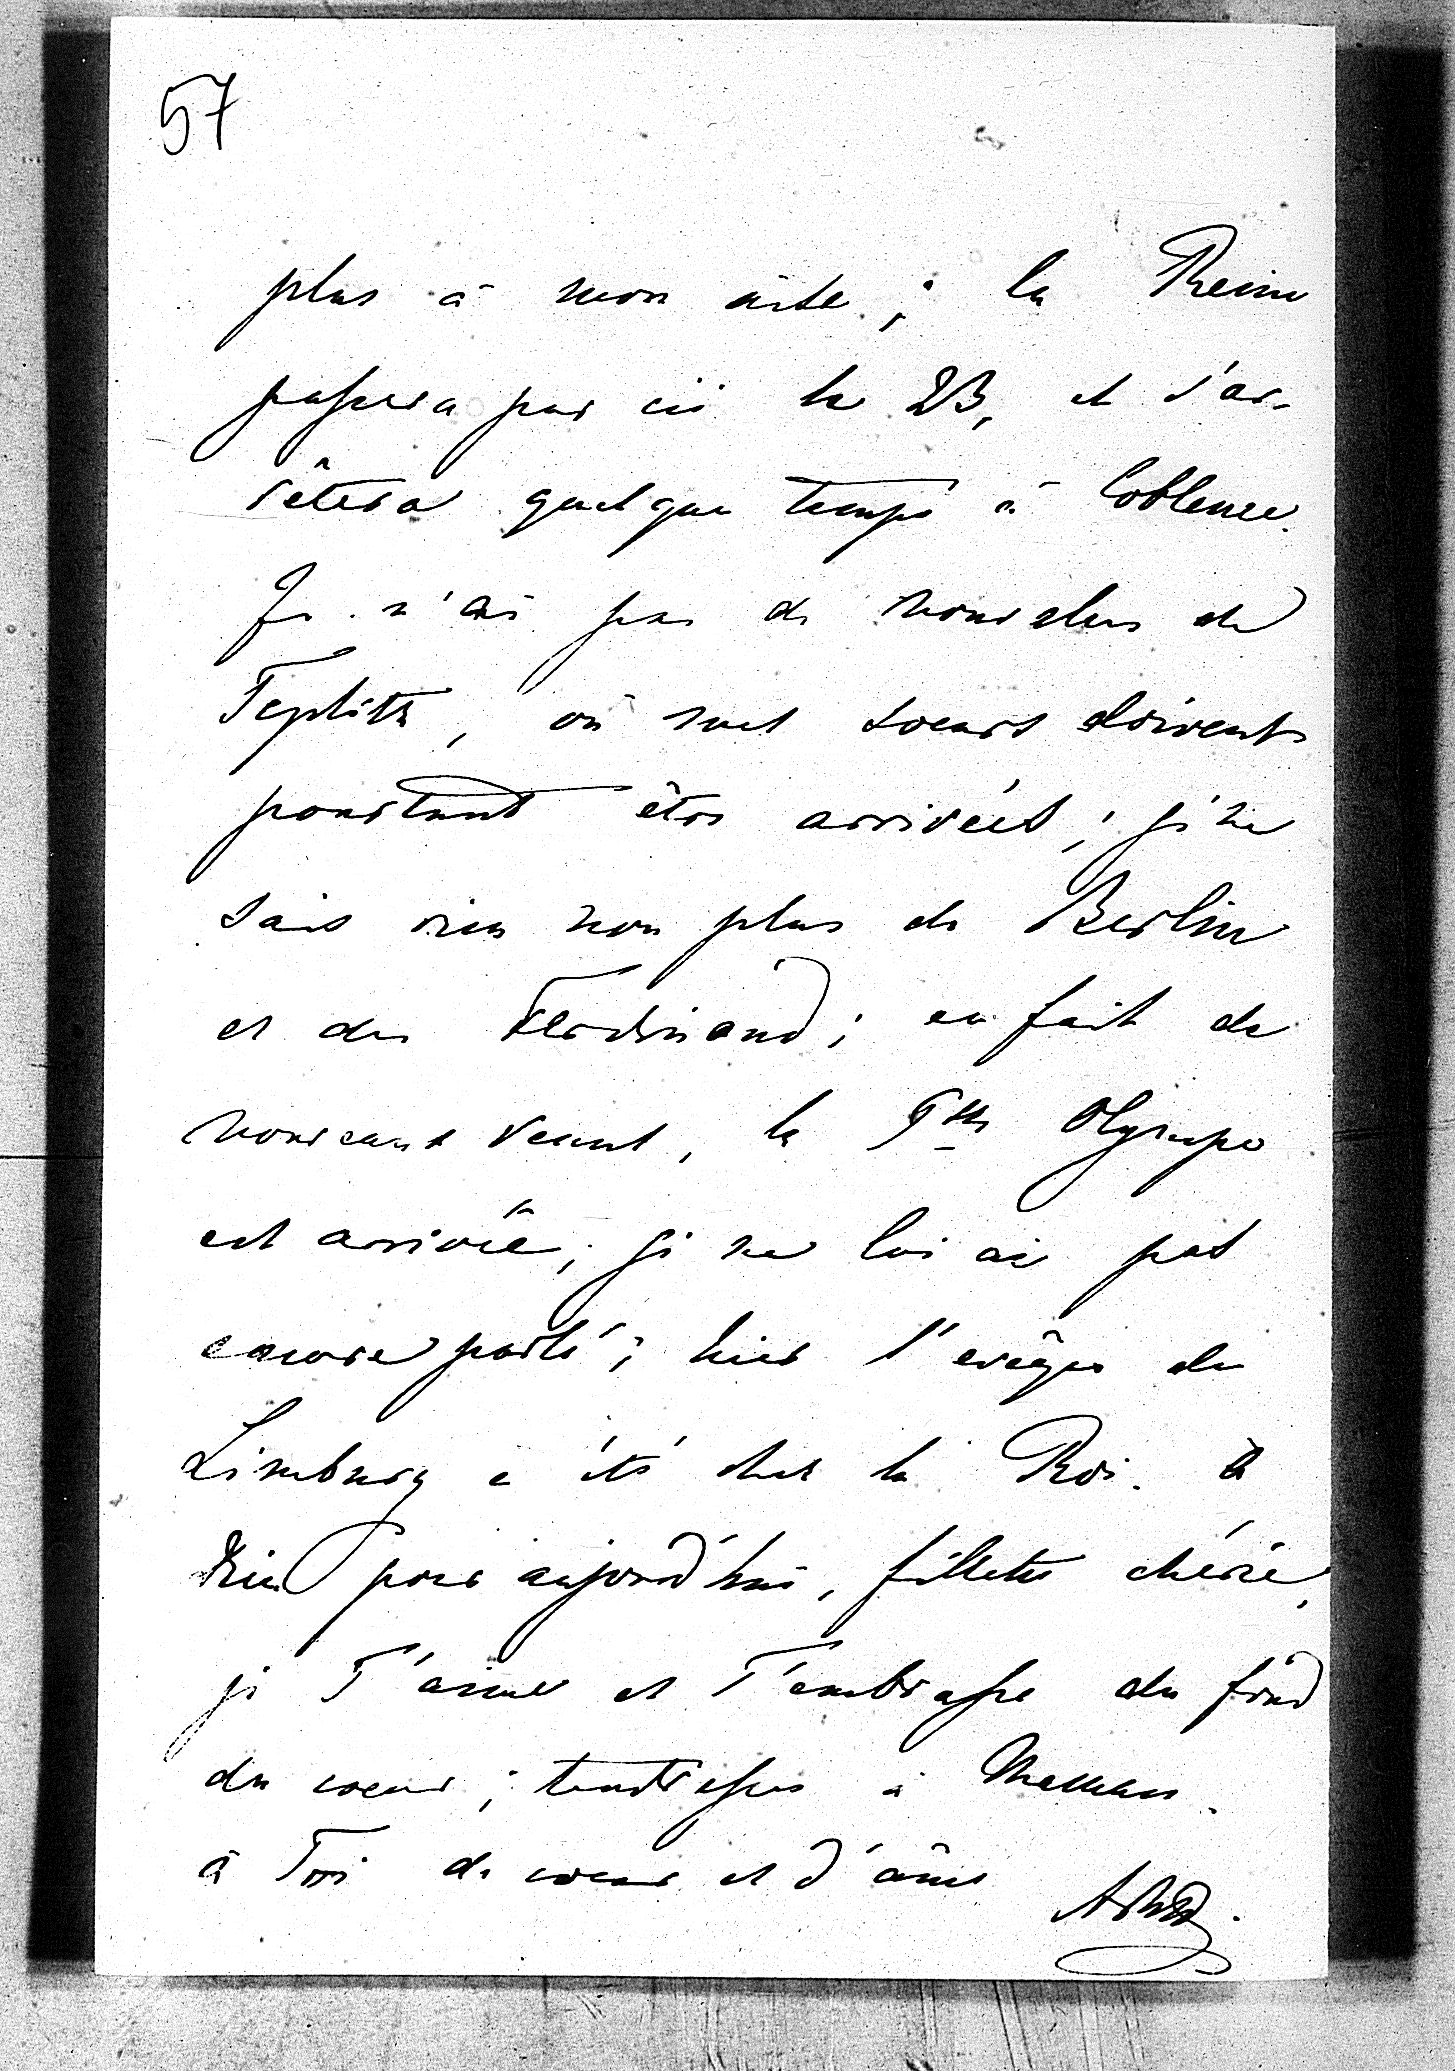 57
plus à mon aise ; la Reine
passera par ici le 23, et s'ar-
rêtera quelque temps à Coblence.
Je n'ai pas de nouvelles de
Teplitz, où mes soeurs doivent
pourtant être arrivées ; je ne
sais rien non plus de Berlin
et de Ferdinand ; en fait de
nouveaux venus, la Psse Olympe
est arrivée ; je ne lui ai pas
encore parlé ; hier l'evêque de
Limburg a été chez le Roi. à
Dieu pour aujourd'hui, fillette chérie,
je T'aime et T'embrasse du fond
du coeur ; tendresses à Maman.
à Toi de coeur et d'âme